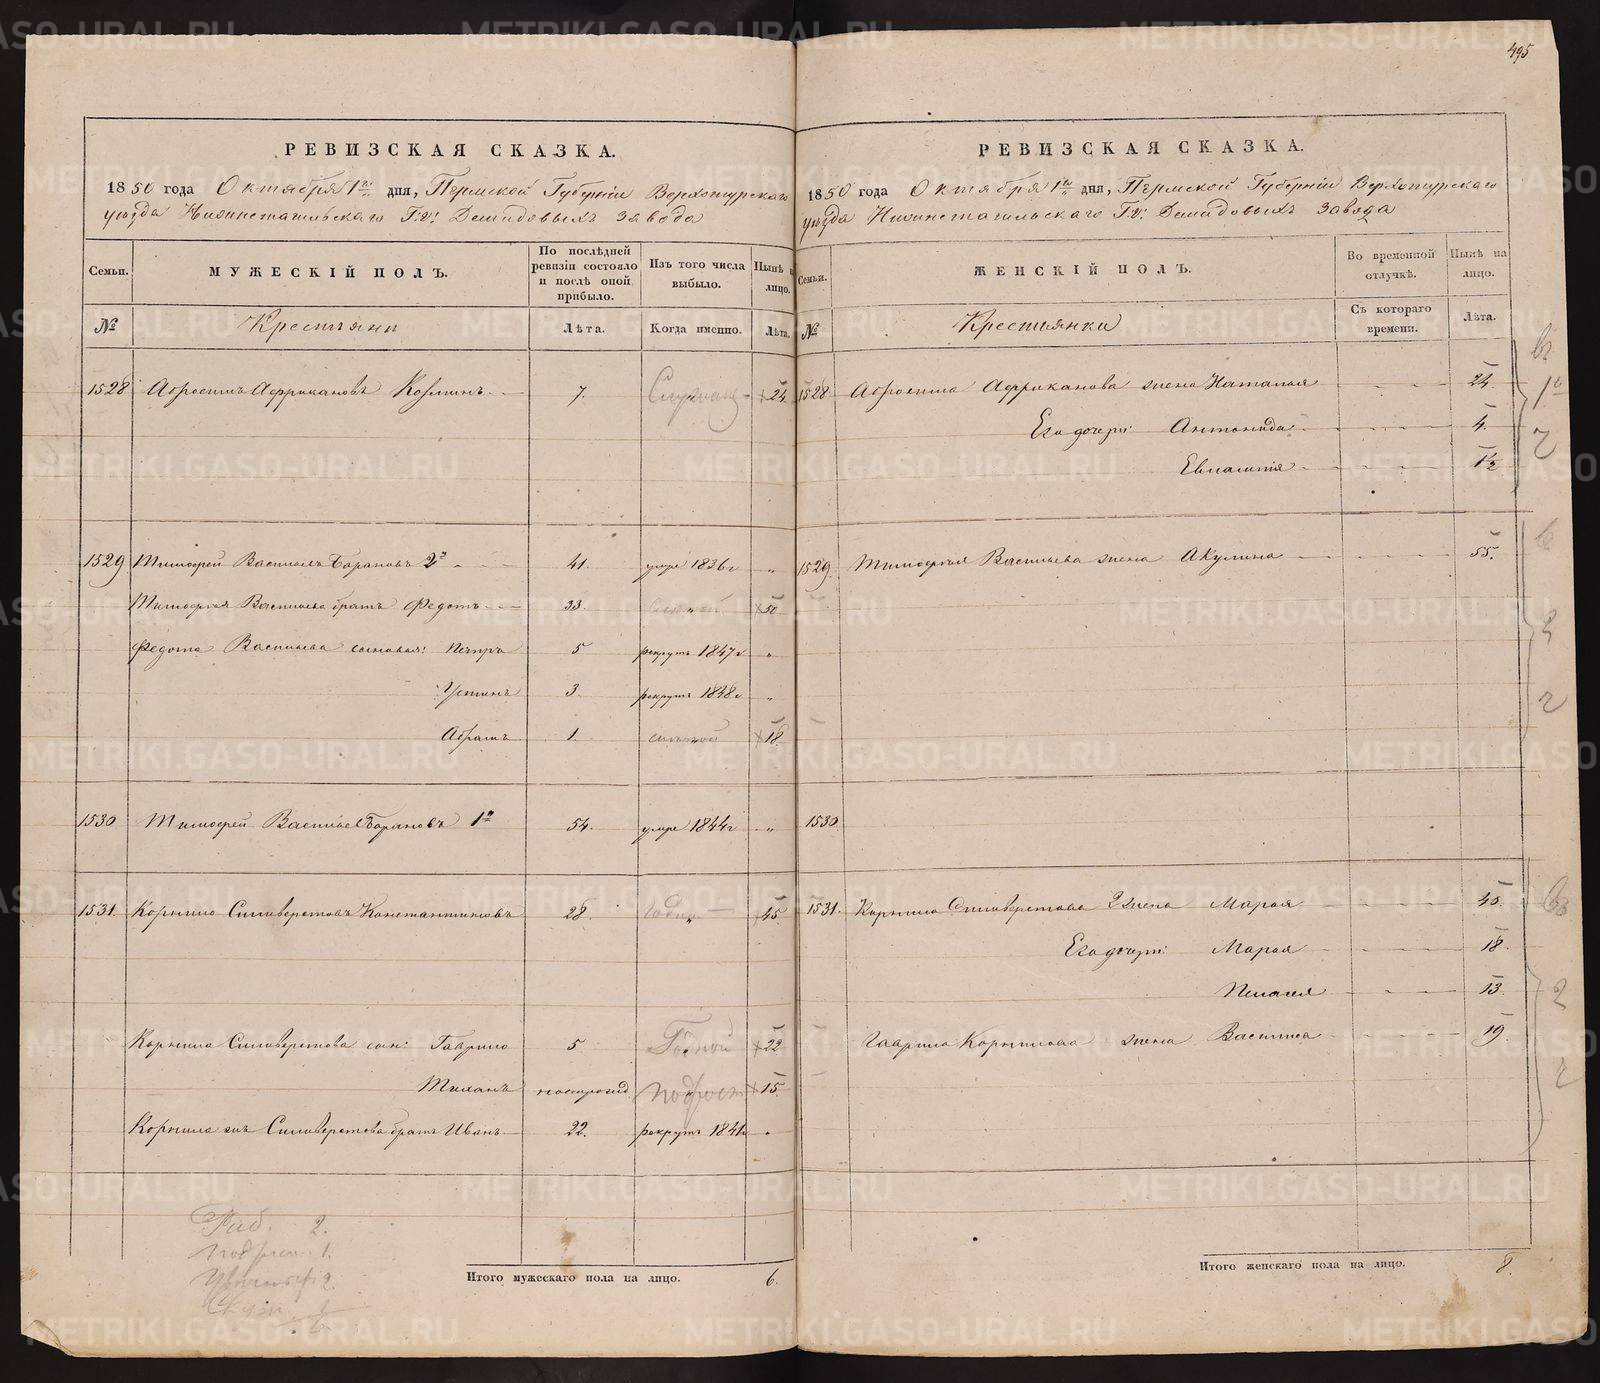 495
РЕВИЗСКАЯ СКАЗКА.
1850 года Октября 1го дня, Пермской Губернiи Верхотурскаго
уѣзда Нижнетагильскаго Г.г. Демидовыхъ завода
Семьи.
МУЖЕСКIЙ ПОЛЪ.
По послѣдней ревизiи состояло и послѣ оной прибыло.
Изъ того числа выбыло.
Нынѣ на лицо.
№
Крестьяне
Лѣта.
Когда именно.
Лѣта.
1528 Абросимъ Африкановъ Козминъ 7. 24.
1529 Тимофей Васильевъ Барановъ 2й 41. умре 1836г „
Тимофея Васильева братъ Федотъ 33. 50
Федота Васильева сыновья: Петръ 5 рекрутъ 1847г „
Устинъ 3. рекрутъ 1848г „
Абрамъ 1. 18.
1530 Тимофей Васильевъ Барановъ 1й 54. умре 1844г „
1531. Корнило Силиверстовъ Константиновъ 28. Годенъ 45.
Корнила Силиверстова сын: Гаврило 5 Годной 22
Тиханъ послѣ рожд. подрост 15.
Корнила же Силиверстова братъ Иванъ 22. рекрутъ 1841г „
Раб. 2.
подрост. 1.
Итого мужескаго пола на лицо. 6.
РЕВИЗСКАЯ СКАЗКА.
1850 года Октября 1го дня, Пермской Губернiи Верхотурскаго
уѣзда Нижнетагильскаго Г.г. Демидовыхъ завода
Семьи.
ЖЕНСКIЙ ПОЛЪ.
Во временной отлучкѣ.
Нынѣ на лицо.
№
Крестьянки
Съ котораго времени.
Лѣта.
1528 Абросима Африканова жена Наталья 24.
Его дочери: Антонида 4.
Евлампiя 1½
1529. Тимофея Васильева жена Акулина 55.
1530.
1531. Корнила Силиверстова жена Марья 45.
Его дочери: Марья 18.
Пелагея 13.
Гаврила Корнилова жена Василиса 19.
Итого женскаго пола на лицо. 8.
METRIKI.GASO-URAL.RU